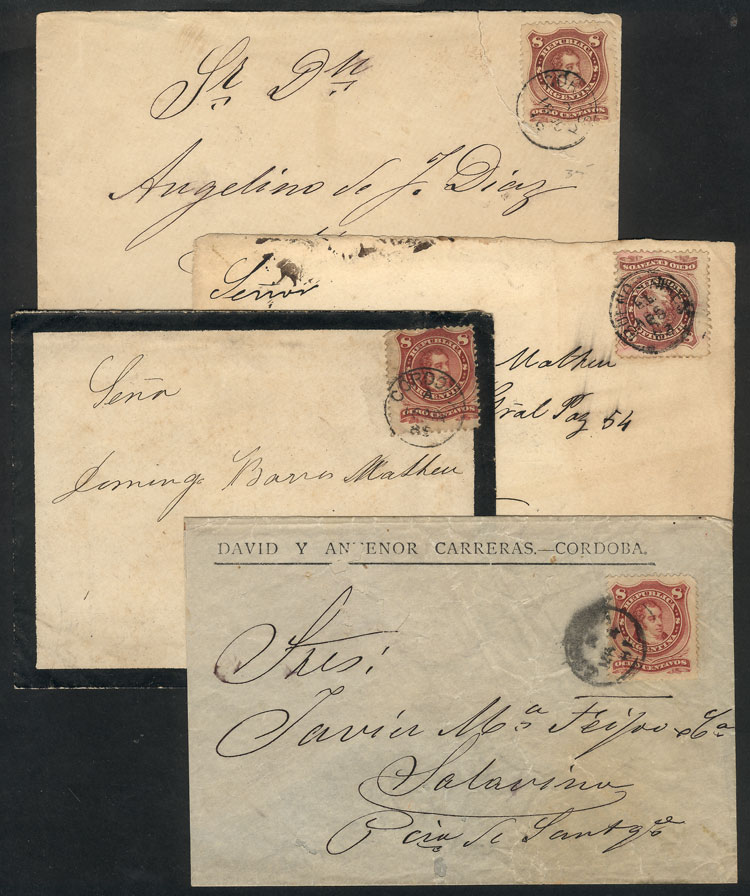 Sr Dn
Angelino de J. Diaz
8 8
REPUBLICA
ARGENTINA
OCHO CENTAVOS
Señor
Matheu
Gral Paz 54
OCHO CENTAVOS
Señor
Domingo Barros Matheu
8 8
REPUBLICA
ARGENTINA
OCHO CENTAVOS
CORDO
DAVID Y ANTENOR CARRERAS.—CORDOBA.
Sres:
Javier Mª Feijoo & Cª
Salavina
Pcia de Santgo
8 8
REPUBLICA
ARGENTINA
OCHO CENTAVOS